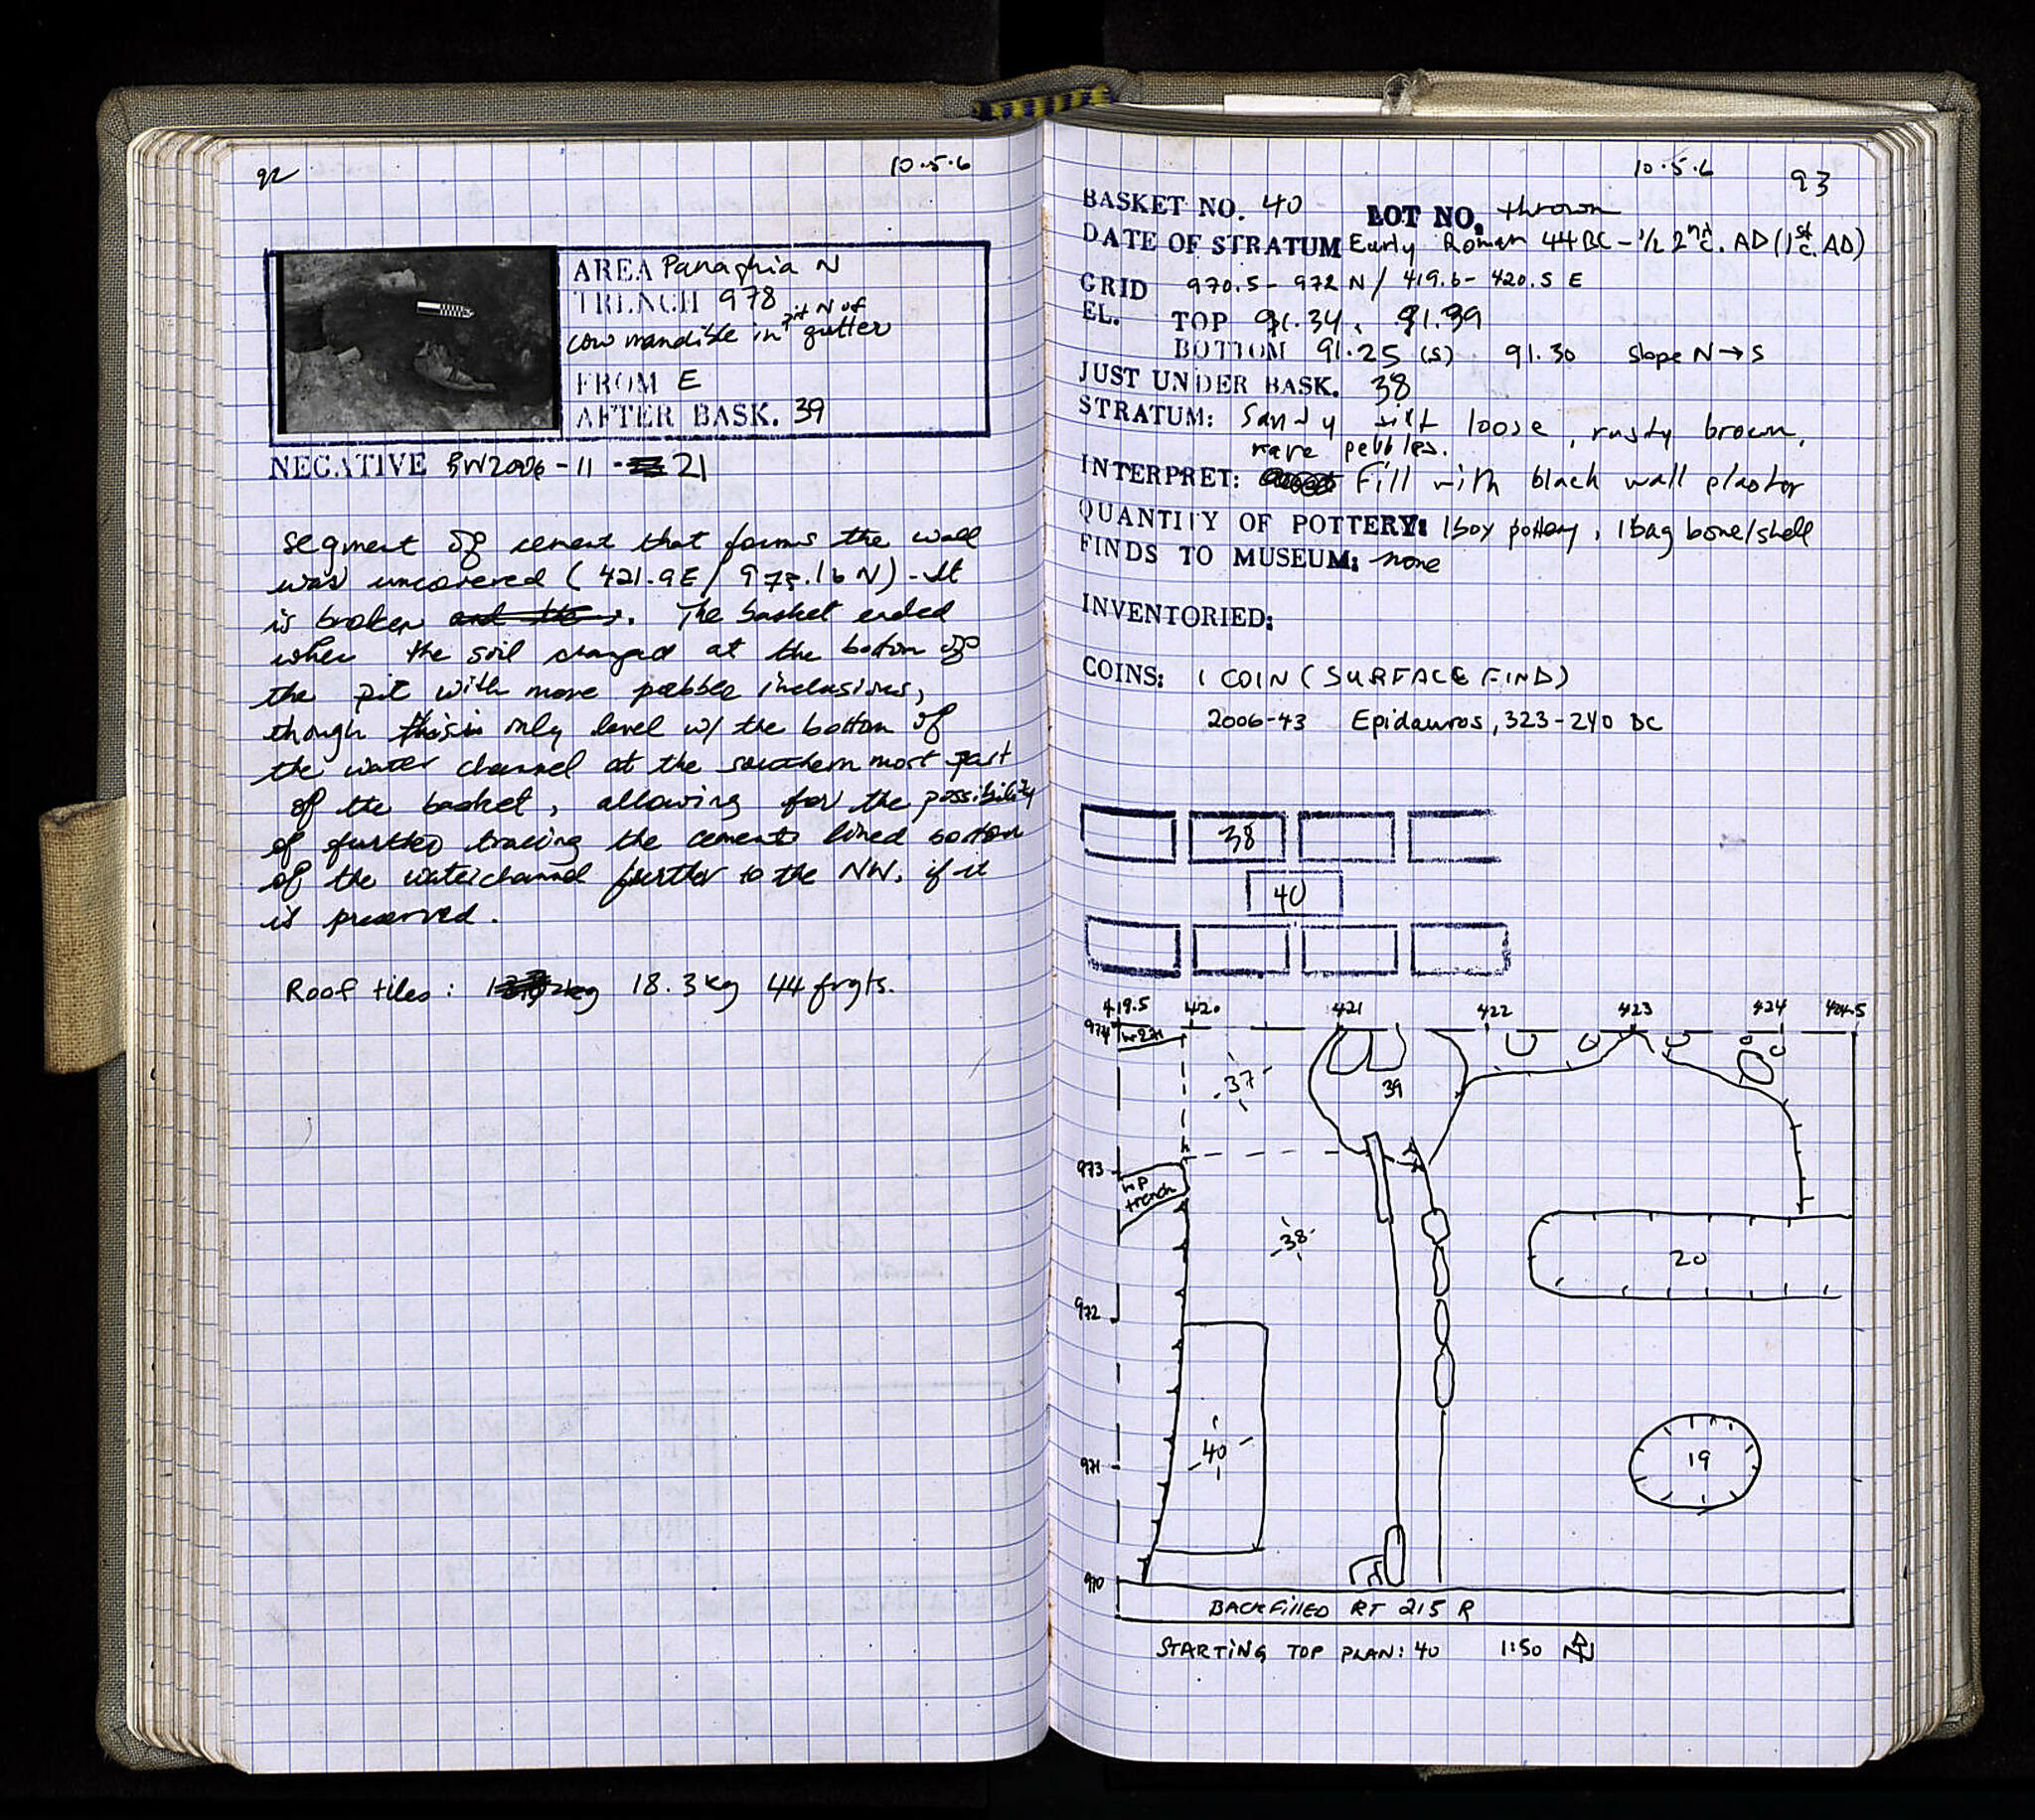 92
10.5.6
AREA Panaghia N
TRENCH 978
cow mandible in pit N of gutter
FROM E
AFTER BASK. 39
NEGATIVE BW2006-11-21
segment of cement that forms the wall
was uncovered (421.9E/973.16N) - It
is broken. The basket ended
when the soil changed at the bottom of
the pit with more pebble inclusions,
though this is only level w/ the bottom of
the water channel at the southern most part
of the basket, allowing for the possibility
of further tracing the cement lined bottom
of the waterchannel further to the NW, if it
is preserved.
Roof tiles: 18.3kg 44 frgts.
10.5.6
93
BASKET NO. 40 LOT NO. thrown
DATE OF STRATUM Early Roman 44BC - 1/2 2nd c. AD (1st c. AD)
GRID 970.5-972 N / 419.6-420.5 E
EL. TOP 91.34, 91.39
BOTTOM 91.25 (S) 91.30 slope N→S
JUST UNDER BASK. 38
STRATUM: Sandy silt loose, rusty brown,
rare pebbles.
INTERPRET: Fill with black wall plaster
QUANTITY OF POTTERY: 1 box pottery, 1 bag bone/shell
FINDS TO MUSEUM: none
INVENTORIED:
COINS: 1 COIN (SURFACE FIND)
2006-43 Epidauros, 323-240 BC
38
40
419.5 420 421 422 423 424 424.5
974
37
39
973
WP trench
38
20
972
40
971
19
970
BACKFILLED RT 215 R
STARTING TOP PLAN: 40 1:50 N